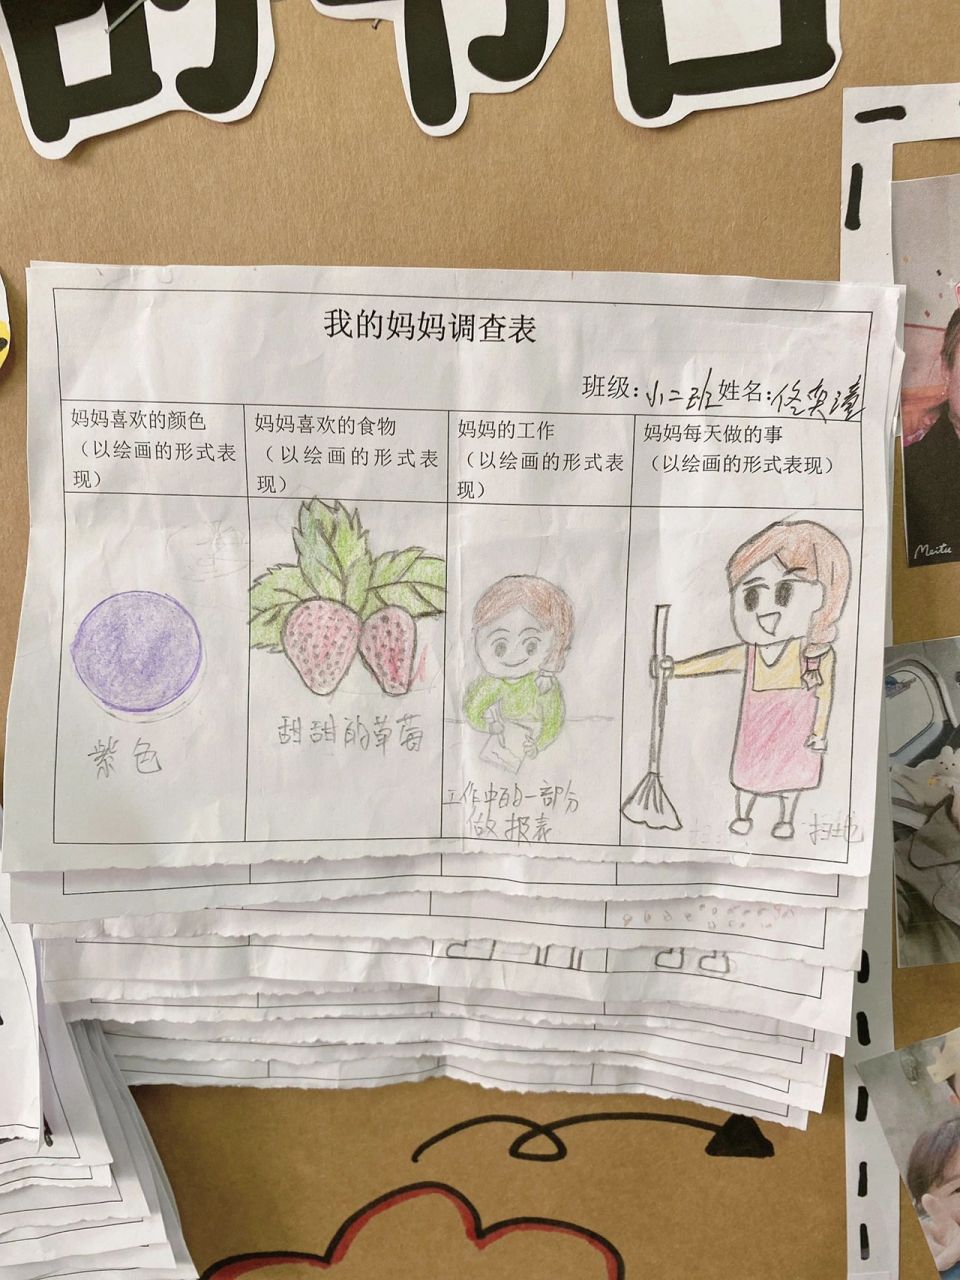 的节日
我的妈妈调查表
班级：小二班 姓名：佟奕潼
妈妈喜欢的颜色
（以绘画的形式表
现）
妈妈喜欢的食物
（以绘画的形式表
现）
妈妈的工作
（以绘画的形式表
现）
妈妈每天做的事
（以绘画的形式表现）
紫色
甜甜的草莓
工作中的一部分
做报表
扫地
Meitu